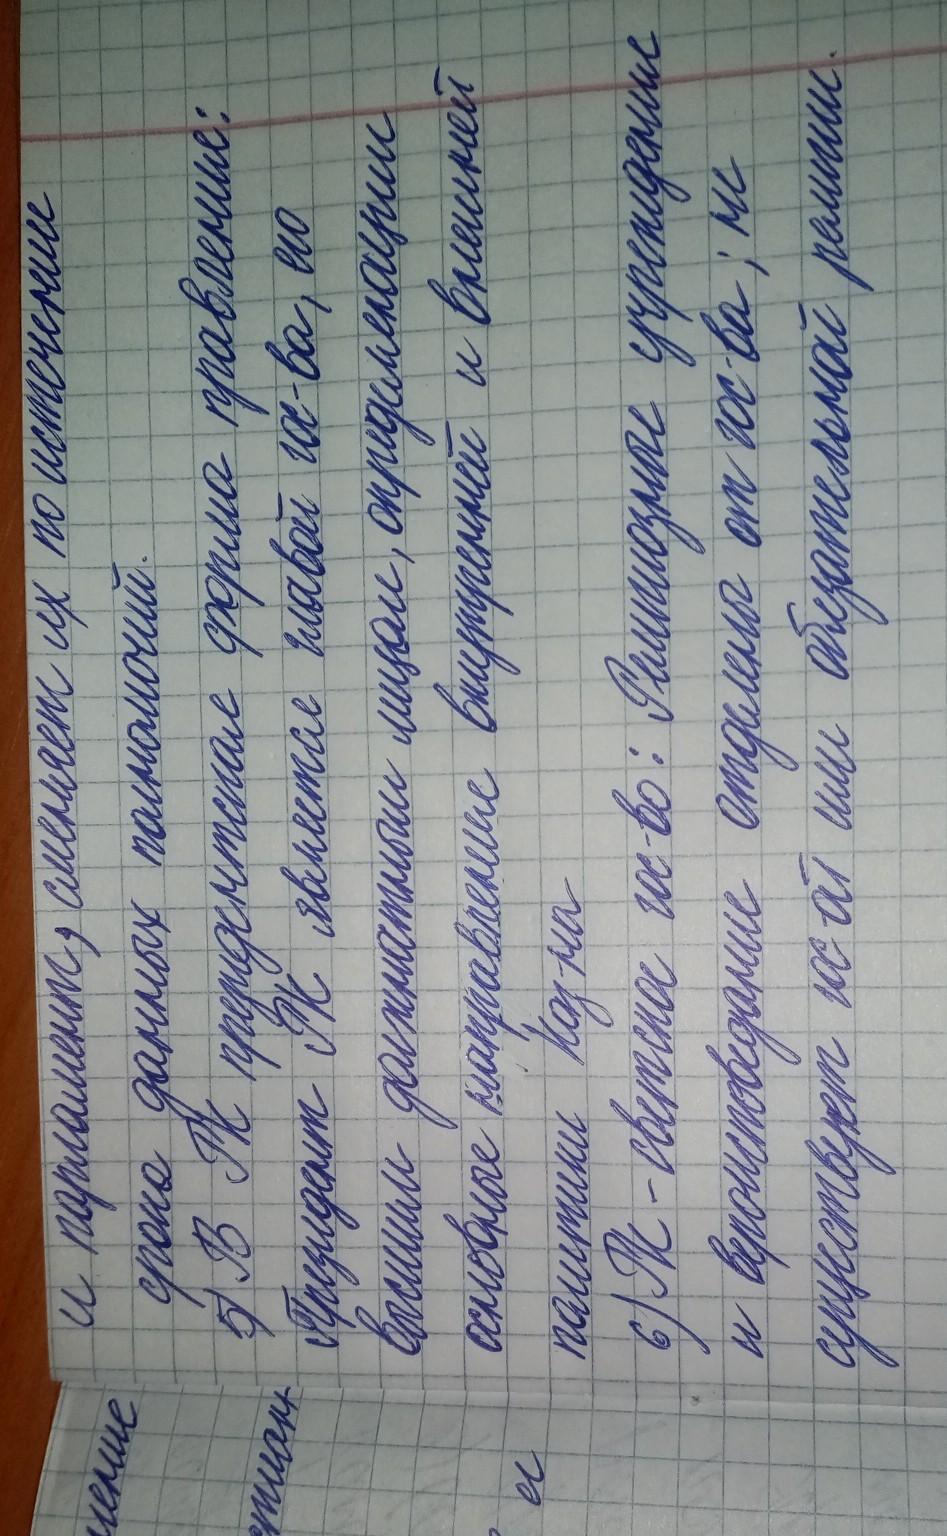 и парламент, сменяет их по истечение
срока данных полномочий.
5) В РК президентская форма правления:
Президент РК является главой гос-ва, его
высшим должностным лицом, определяющим
основные направление внутренней и внешней
политики Каз-на
6) РК - светское гос-во: Религиозные учреждение
и вероисповедание отделены от гос-ва; не
существует гос-ой или обязательной религии.
ление
ес